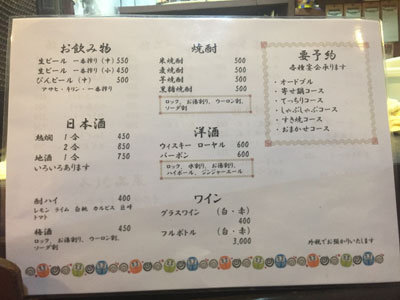 お飲み物
生ビール 一番搾り(中) 550
生ビール 一番搾り(小) 450
びんビール(中) 500
アサヒ・キリン・一番搾り
日本酒
熱燗 1合 450
2合 850
地酒 1合 750
いろいろあります
酎ハイ 400
レモン ライム 白桃 カルピス 巨峰
トマト
梅酒 450
ロック、お湯割り、ウーロン割、
ソーダ割
焼酎
米焼酎 500
麦焼酎 500
芋焼酎 500
黒糖焼酎 500
ロック、お湯割り、ウーロン割、
ソーダ割
洋酒
ウィスキー ローヤル 600
バーボン 600
ロック、水割り、お湯割り、
ハイボール、ジンジャーエール
ワイン
グラスワイン (白・赤)
400
フルボトル (白・赤)
3,000
要予約
各種宴会承ります
・オードブル
・寄せ鍋コース
・てっちりコース
・しゃぶしゃぶコース
・すき焼コース
・おまかせコース
外税でお預かりいたします